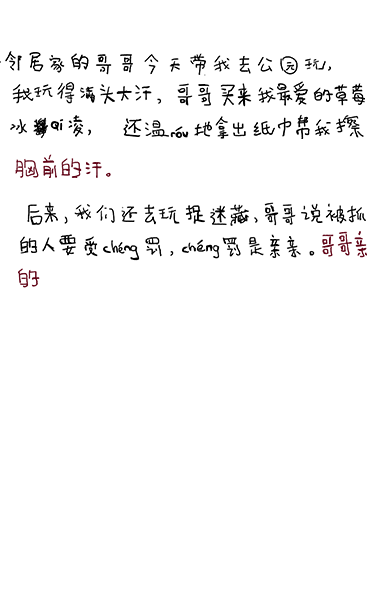 邻居家的哥哥今天带我去公园玩，
我玩得满头大汗，哥哥买来我最爱的草莓
冰qi凌，还温róu地拿出纸巾帮我擦
胸前的汗。
后来，我们还去玩捉迷藏，哥哥说被抓
的人要受chéng罚，chéng罚是亲亲。哥哥亲
的